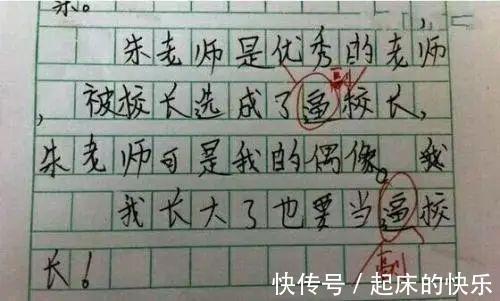 朱老师是优秀的老师
副
，被校长选成了逼校长，
朱老师可是我的偶像。我
我长大了也要当逼校
长！
副
快传号 / 起床的快乐